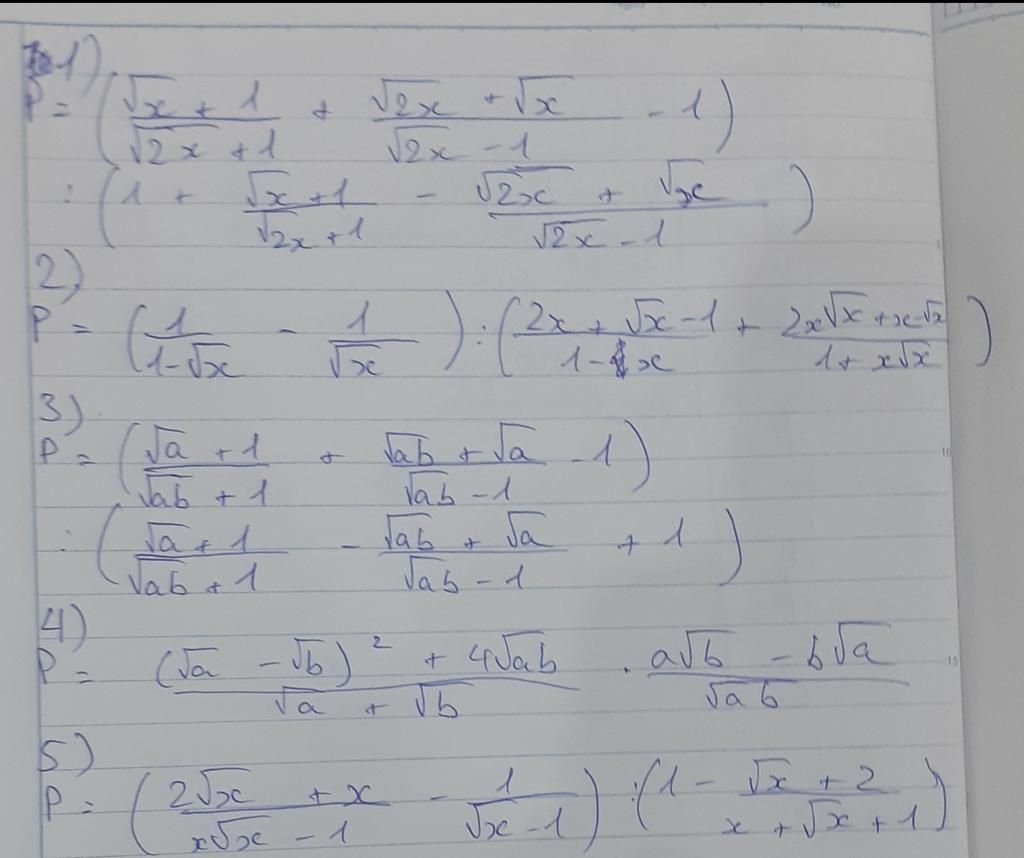 1)
P = ( (√x + 1)/(√2x + 1) + (√2x + √x)/(√2x - 1) - 1 )
: ( 1 + (√x + 1)/(√2x + 1) - (√2x + √x)/(√2x - 1) )
2)
P = ( 1/(1-√x) - 1/√x ) : ( (2x + √x - 1)/(1 - x) + (2x√x + x - √x)/(1 + x√x) )
3)
P = ( (√a + 1)/(√ab + 1) + (√ab + √a)/(√ab - 1) - 1 )
: ( (√a + 1)/(√ab + 1) - (√ab + √a)/(√ab - 1) + 1 )
4)
P = ((√a - √b)² + 4√ab)/(√a + √b) . (a√b - b√a)/√ab
5)
P = ( (2√x + x)/(x√x - 1) - 1/(√x - 1) ) : ( 1 - (√x + 2)/(x + √x + 1) )